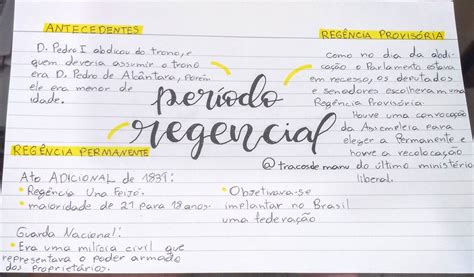 ANTECEDENTES
D. Pedro I abdicou do trono, e
quem deveria assumir o trono
era D. Pedro de Alcântara, porém
ele era menor de
idade.
REGÊNCIA PROVISÓRIA
como no dia da abdi-
cação o Parlamento estava
em recesso, os deputados
e senadores escolheram uma
Regência Provisória.
Houve uma convocação
da Assembleia para
eleger a Permanente e
houve a recolocação
do último ministério
liberal.
período
regencial
@tracosdemanu
REGÊNCIA PERMANENTE
Ato ADICIONAL de 1831:
• Regência Una Feijó.
• maioridade de 21 para 18 anos.
• Objetivava-se
implantar no Brasil
uma federação
Guarda Nacional:
• Era uma milícia civil que
representava o poder armado
dos proprietários.